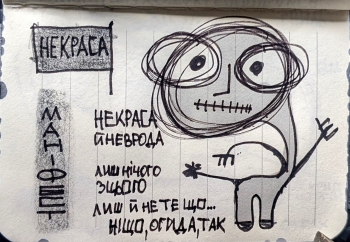 НЕКРАСА
МАНІФЕСТ
НЕКРАСА
Й НЕВРОДА
ЛИШ НІЧОГО
З ЦЬОГО
ЛИШ Й НЕ ТЕ ЩО...
НІЩО, ОГИДА, ТАК